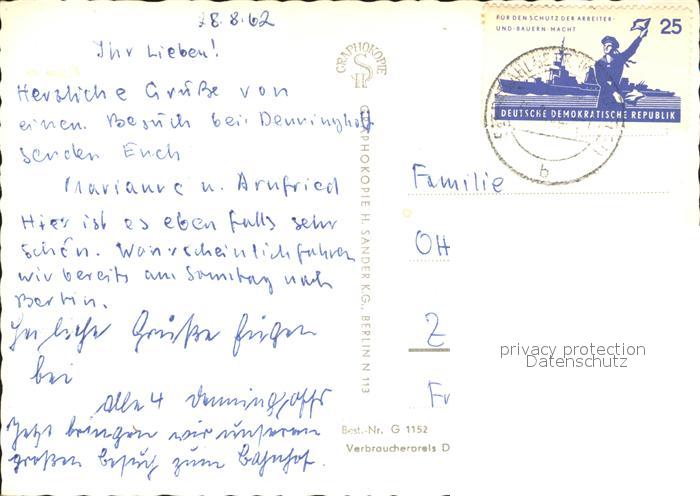 28.8.62
Ihr Lieben!
Herzliche Grüße von
einem Besuch bei Denninghoff
senden Euch
Marianne u. Arnfried
Hier ist es eben falls sehr
schön. Wahrscheinlich fahren
wir bereits am Samstag nach
Berlin.
Herzliche Grüße fügen
bei
alle 4 Denninghoffs
Jetzt bringen wir unseren
großen Besuch zum Bahnhof.
GRAPHOKOPIE
GRAPHOKOPIE H. SANDER KG., BERLIN N 113
FÜR DEN SCHUTZ DER ARBEITER-
UND-BAUERN MACHT
25
DEUTSCHE DEMOKRATISCHE REPUBLIK
b
Familie
OH
Z
Fr
privacy protection
Datenschutz
Best.-Nr. G 1152
Verbraucherpreis D